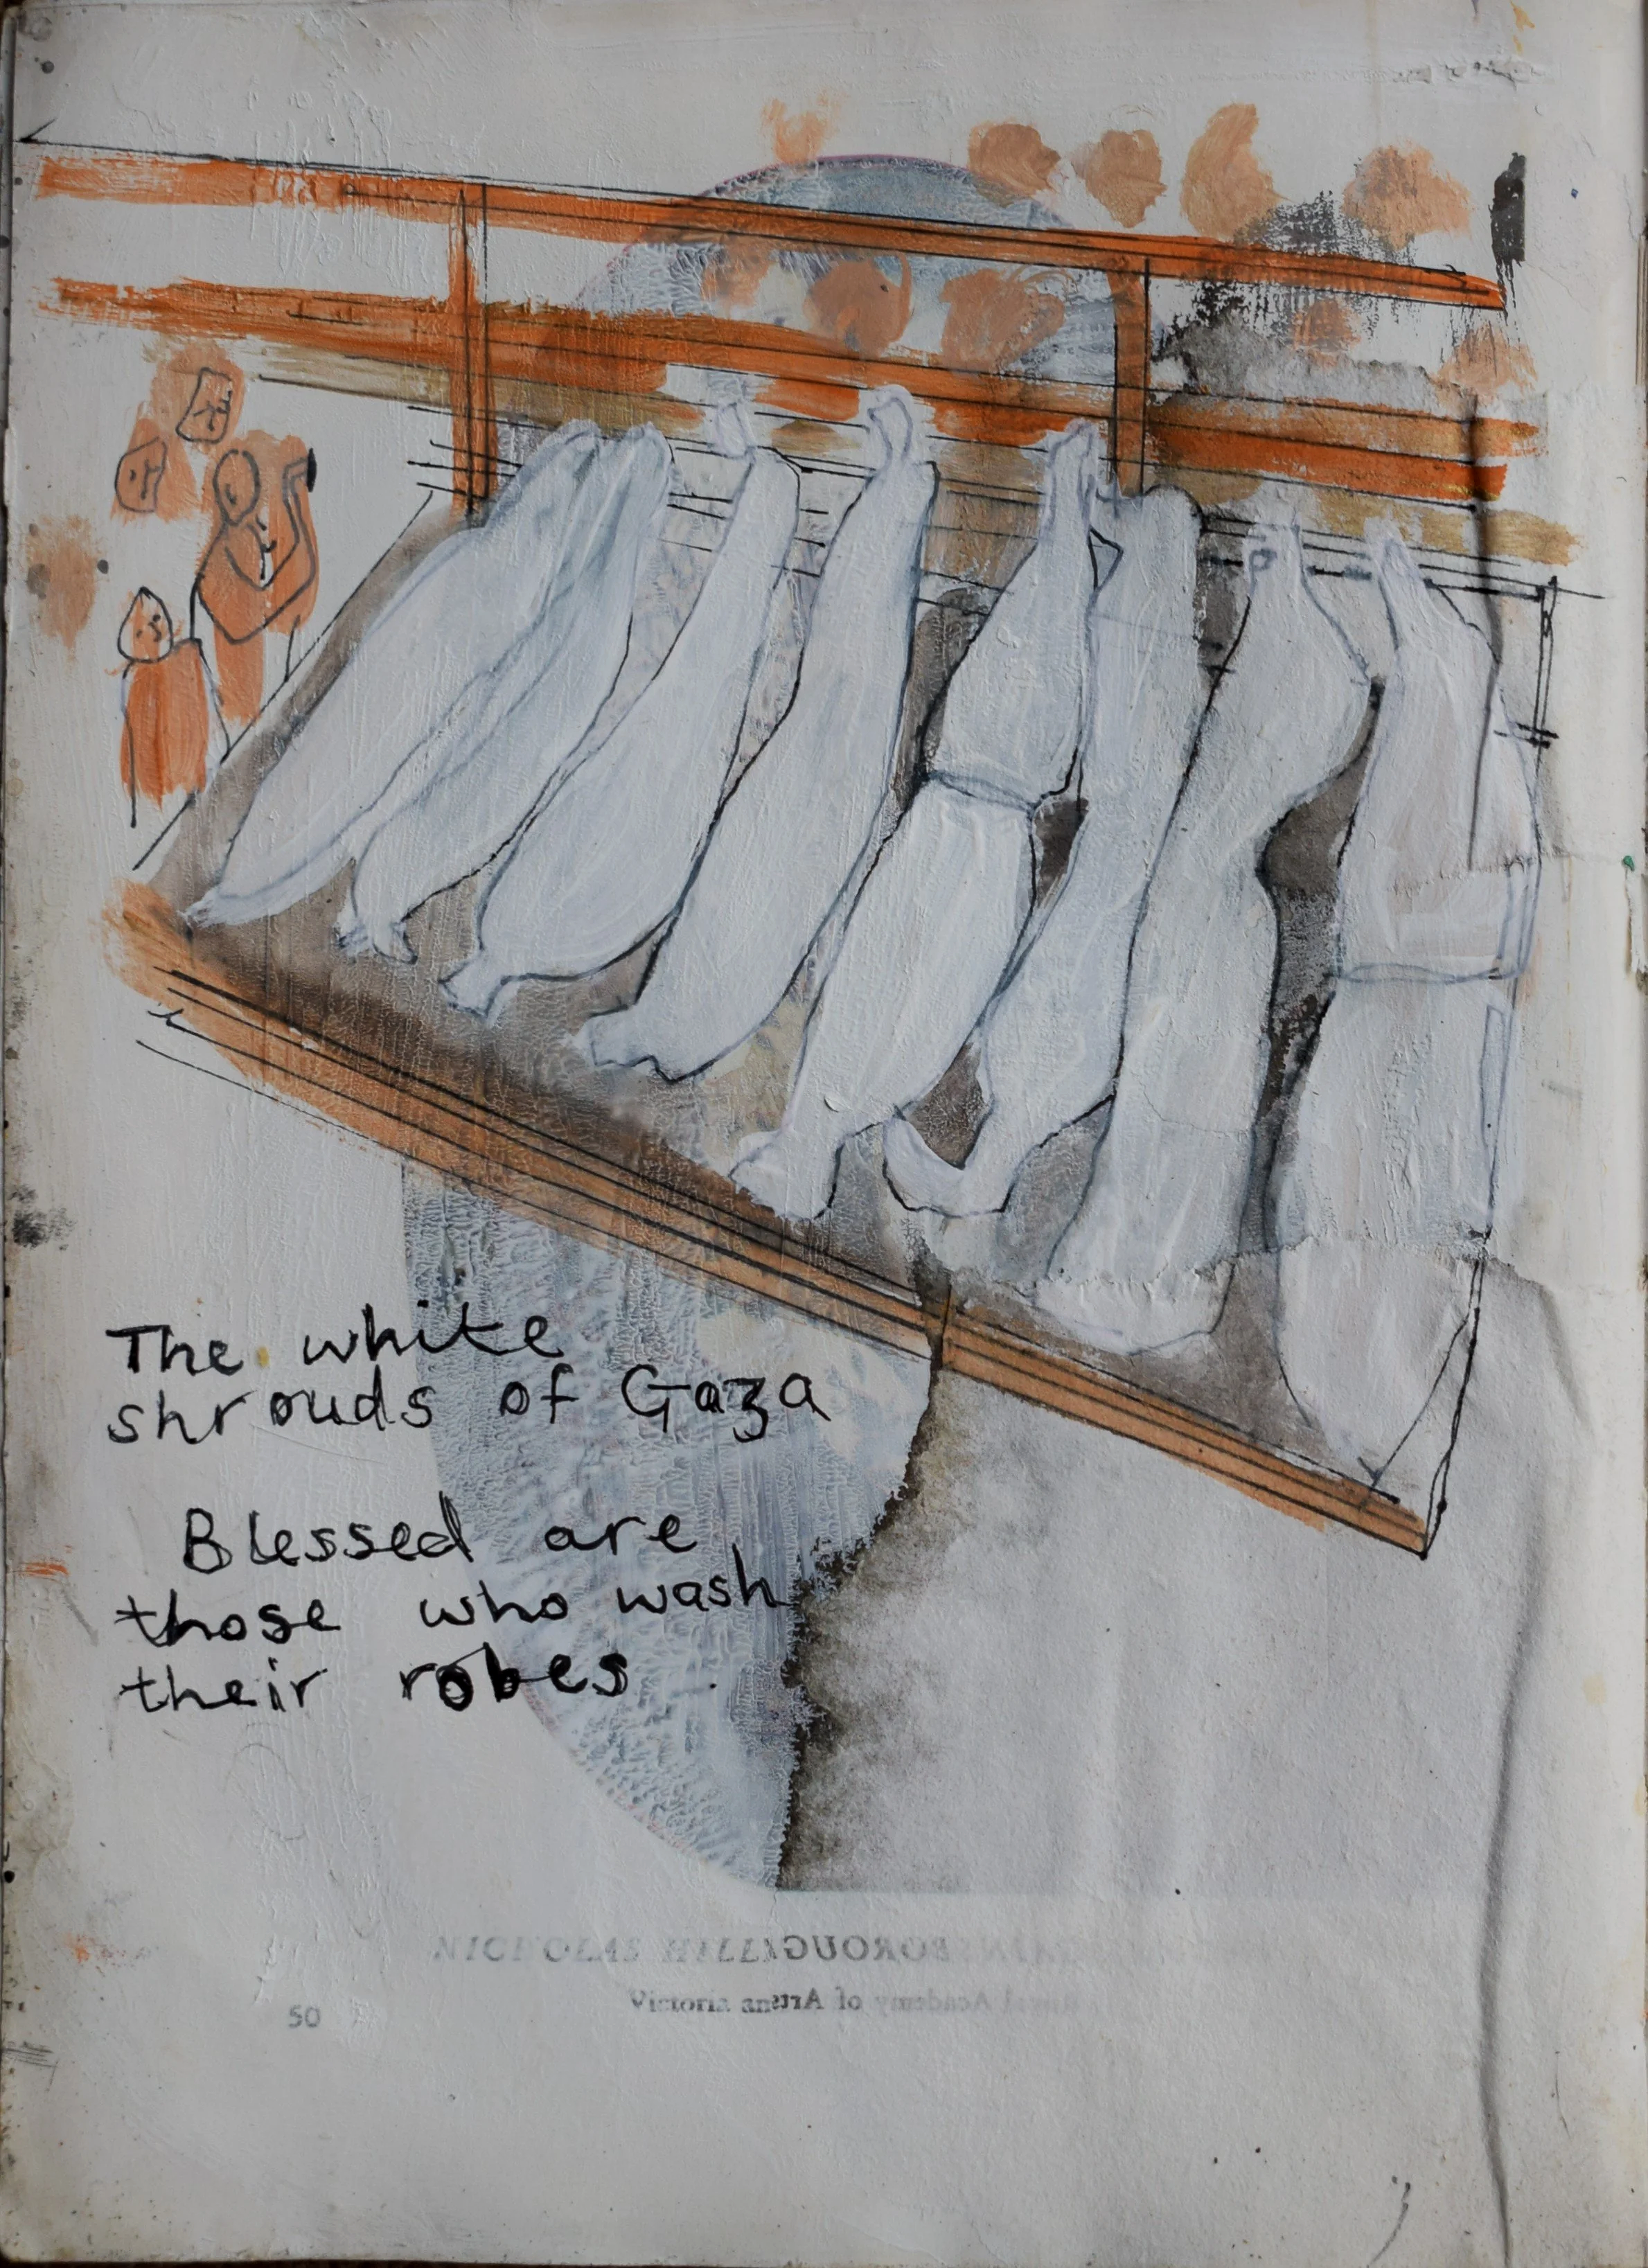 The white
shrouds of Gaza
Blessed are
those who wash
their robes.
NICHOLAS HILLI
Victoria an
50